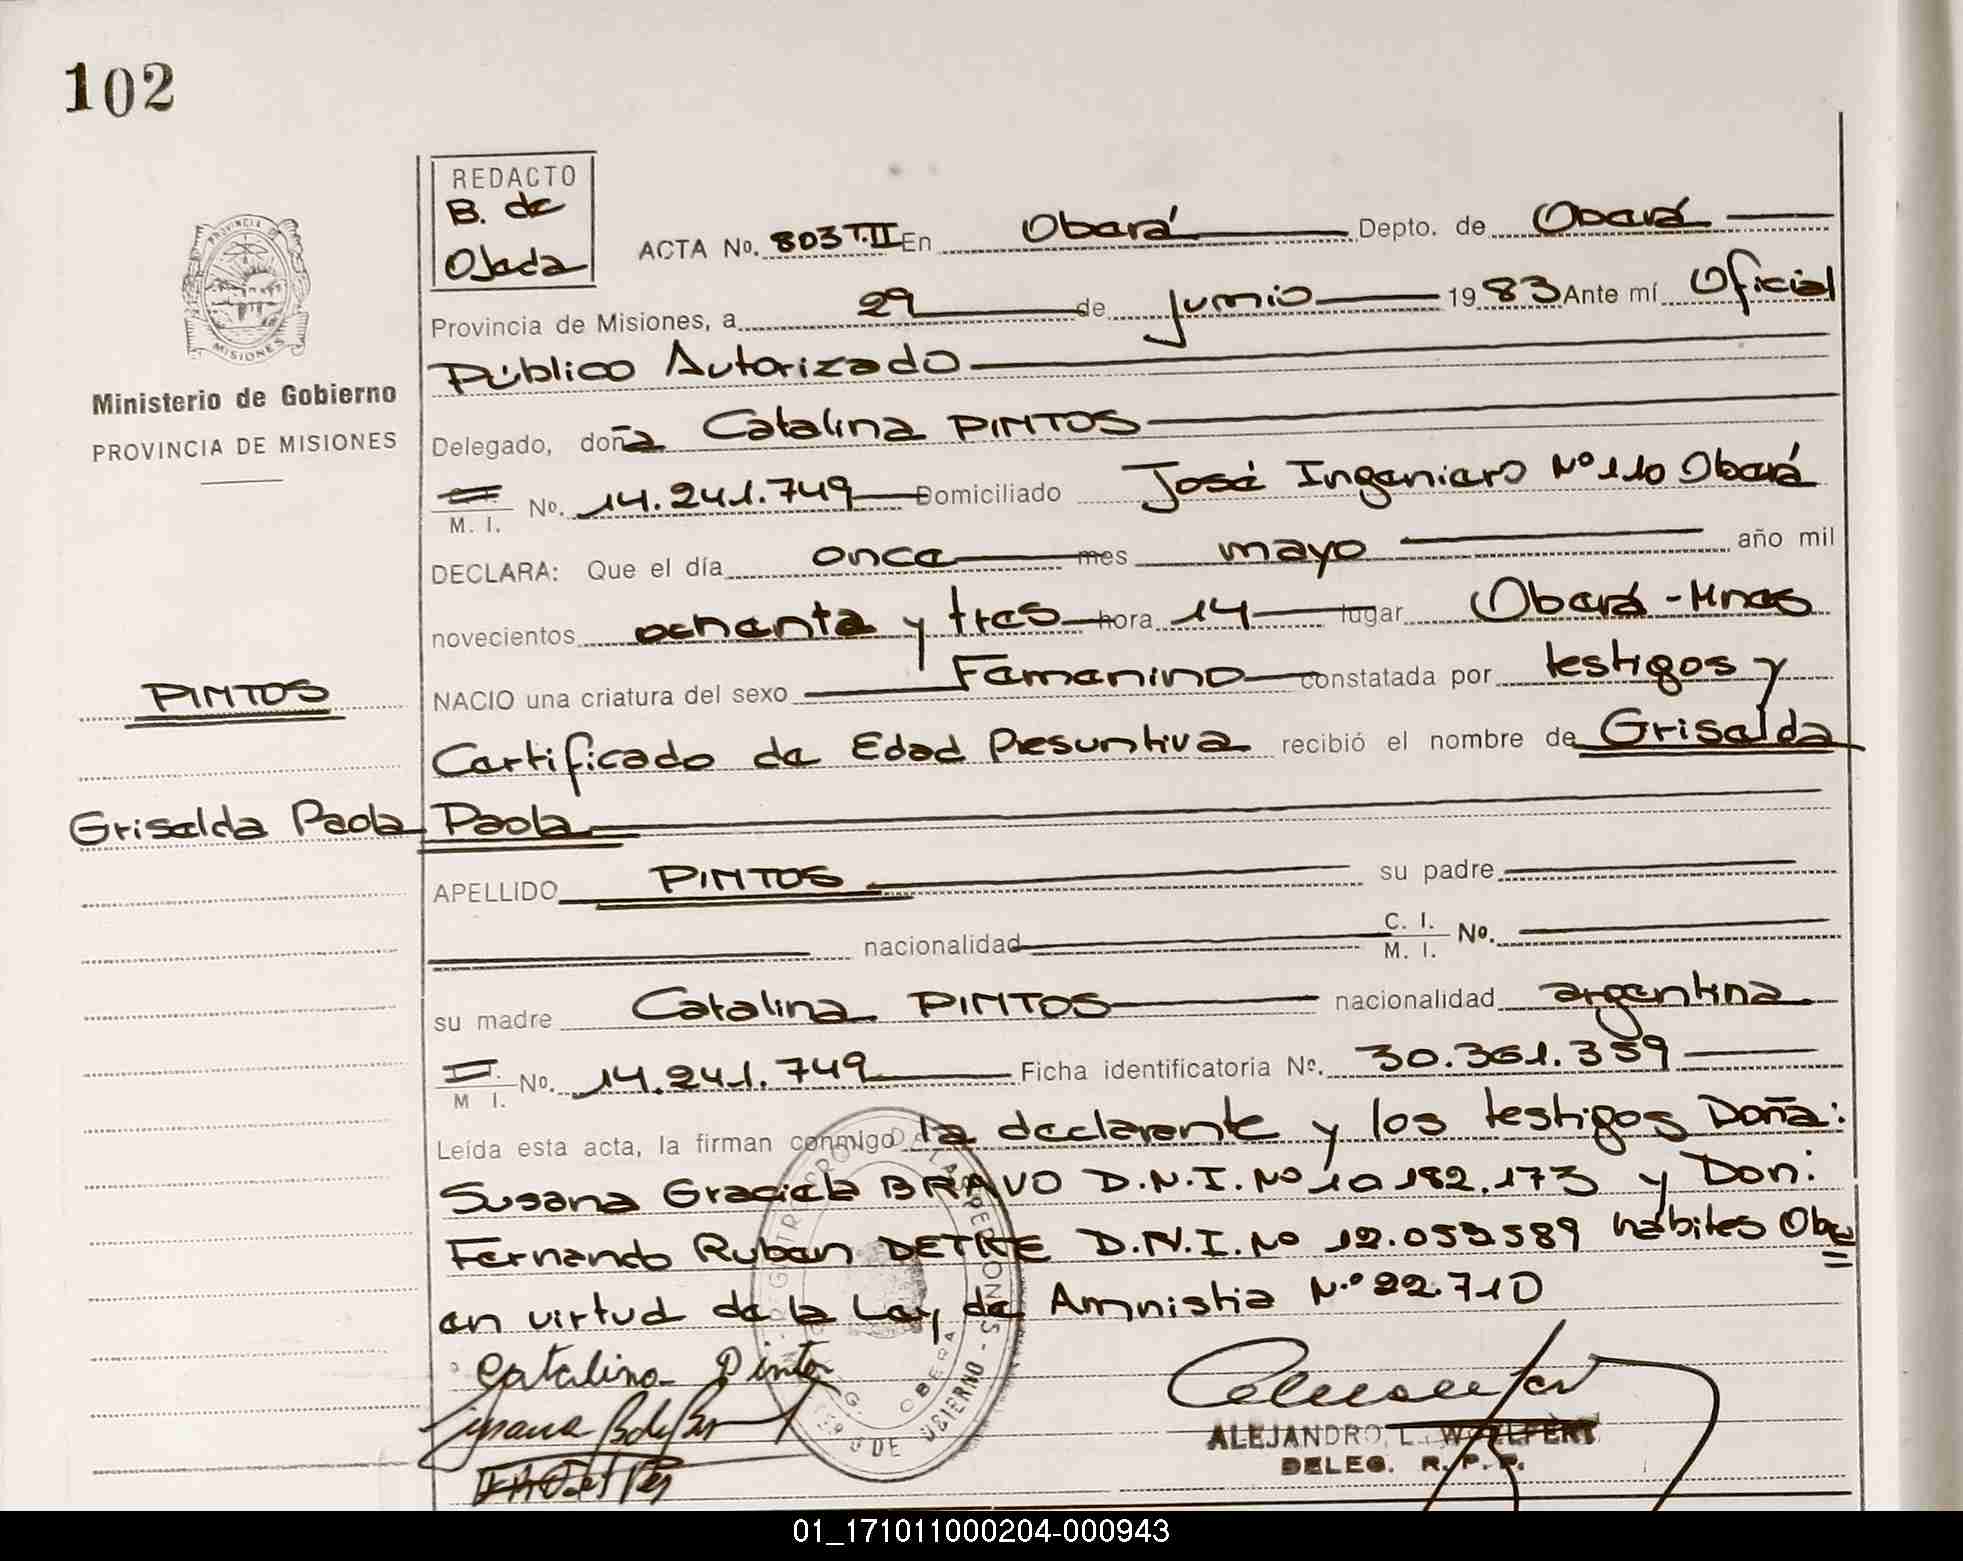 102
REDACTO
B. de
Ojeda
ACTA No. 803 T.II En Oberá Depto. de Oberá
Provincia de Misiones, a 29 de junio 1983 Ante mí Oficial
Público Autorizado
Delegado, doña Catalina PINTOS
M. I. No. 14.241.749 Domiciliado José Ingenieros Nº 110 Oberá
DECLARA: Que el día once mes mayo año mil
novecientos ochenta y tres hora 14 lugar Oberá - Mnes
NACIO una criatura del sexo Femenino constatada por testigos y
Certificado de Edad Presuntiva recibió el nombre de Griselda
Paola
APELLIDO PINTOS su padre
nacionalidad C. I. M. I. Nº.
su madre Catalina PINTOS nacionalidad argentina
M I. No. 14.241.749 Ficha identificatoria Nº. 30.361.359
Leída esta acta, la firman conmigo la declarante y los testigos Doña:
Susana Graciela BRAVO D.N.I. Nº 10.182.173 y Don:
Fernando Ruben DETRE D.N.I. Nº 12.053.589 hábiles
en virtud de la Ley de Amnistia N.º 22.710
Catalina Pintos
ALEJANDRO L.
DELEG. R. P. P.
PROVINCIA DE
MISIONES
Ministerio de Gobierno
PROVINCIA DE MISIONES
PINTOS
Griselda Paola
OBERA
01_171011000204-000943